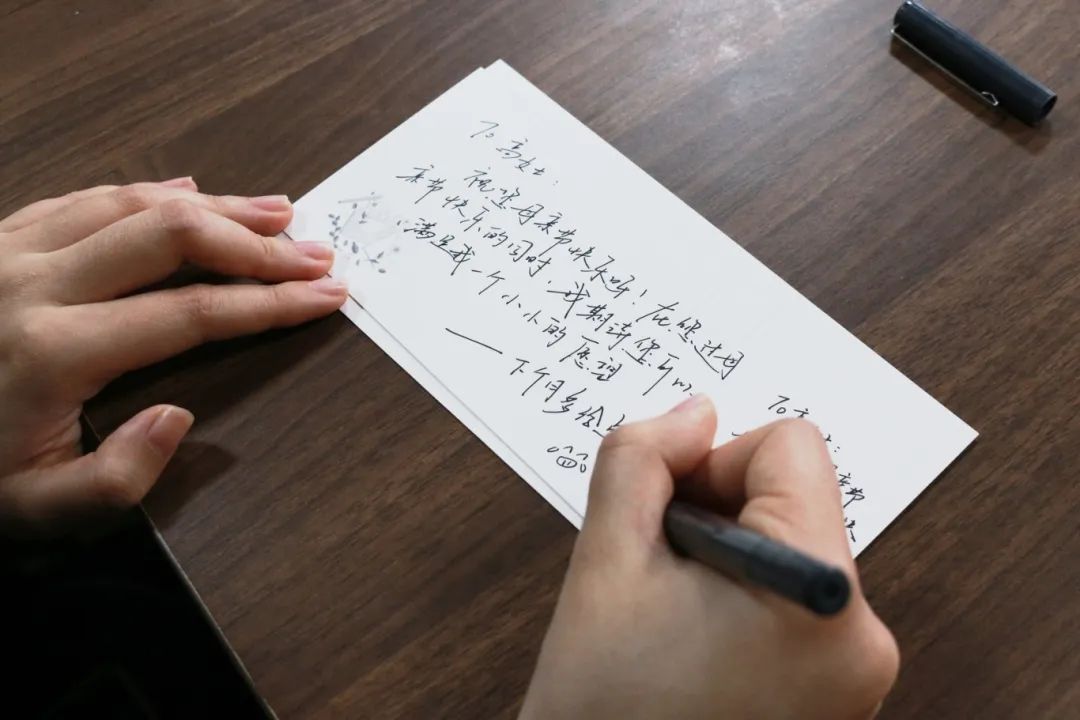 To 高女士：
祝您母亲节快乐呀！在您过母
亲节快乐的同时，我期待您可以
满足我一个小小的愿望
——下个月多给
To
亲节